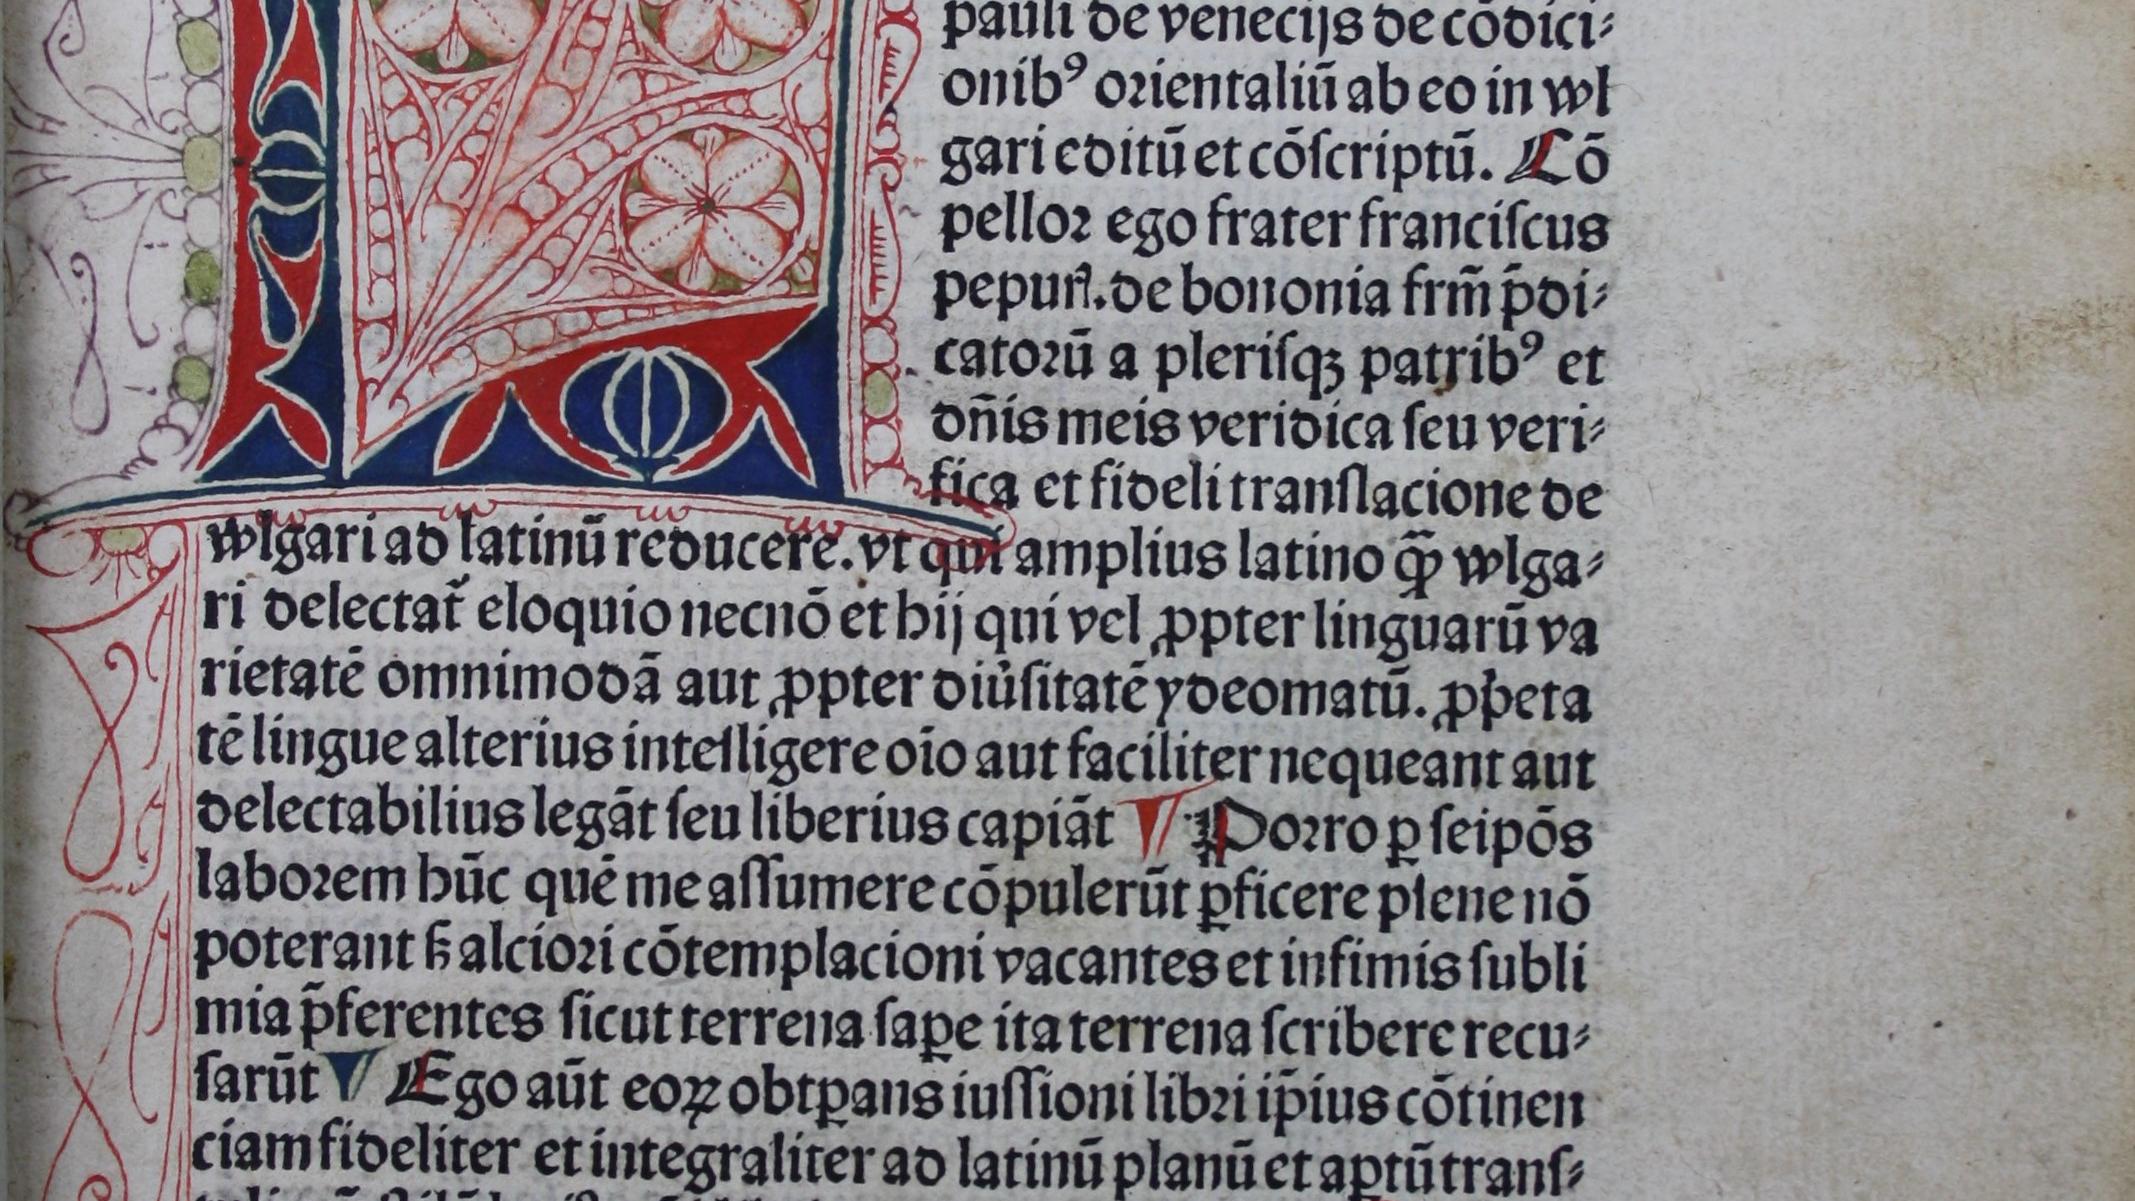 pauli de venecijs de cōdici⸗
onibꝰ orientaliū ab eo in wl
gari editū et cōſcriptū. Cō
pellor ego frater franciſcus
de bononia frm̄ p̄di⸗
catorū a pleriſqꝫ patribꝰ et
dn̄is meis veridica ſeu veri⸗
fica et fideli tranſlacione de
wlgari ad latinū reducere. vt qui amplius latino qꝫ̄ wlga⸗
ri delectat᷑ eloquio necnō et hij qui vel ꝓpter linguarū va
rietatē omnimodā aut ꝓpter diu͛ſitatē ydeomatū. ꝓp̄eta
tē lingue alterius intelligere oīo aut faciliter nequeant aut
delectabilius legāt ſeu liberius capiāt ¶ Porro ꝑ ſeipōs
laborem hūc quē me aſſumere cōpulerūt ꝑficere plene nō
poterant ẜ alciori cōtemplacioni vacantes et infimis ſubli
mia p̄ferentes ſicut terrena ſaꝑe ita terrena ſcribere recu⸗
ſarūt ¶ Ego aūt eoꝝ obtꝑans iuſſioni libri ip̄ius cōtinen
ciam fideliter et integraliter ad latinū planū et aptū tranſ⸗